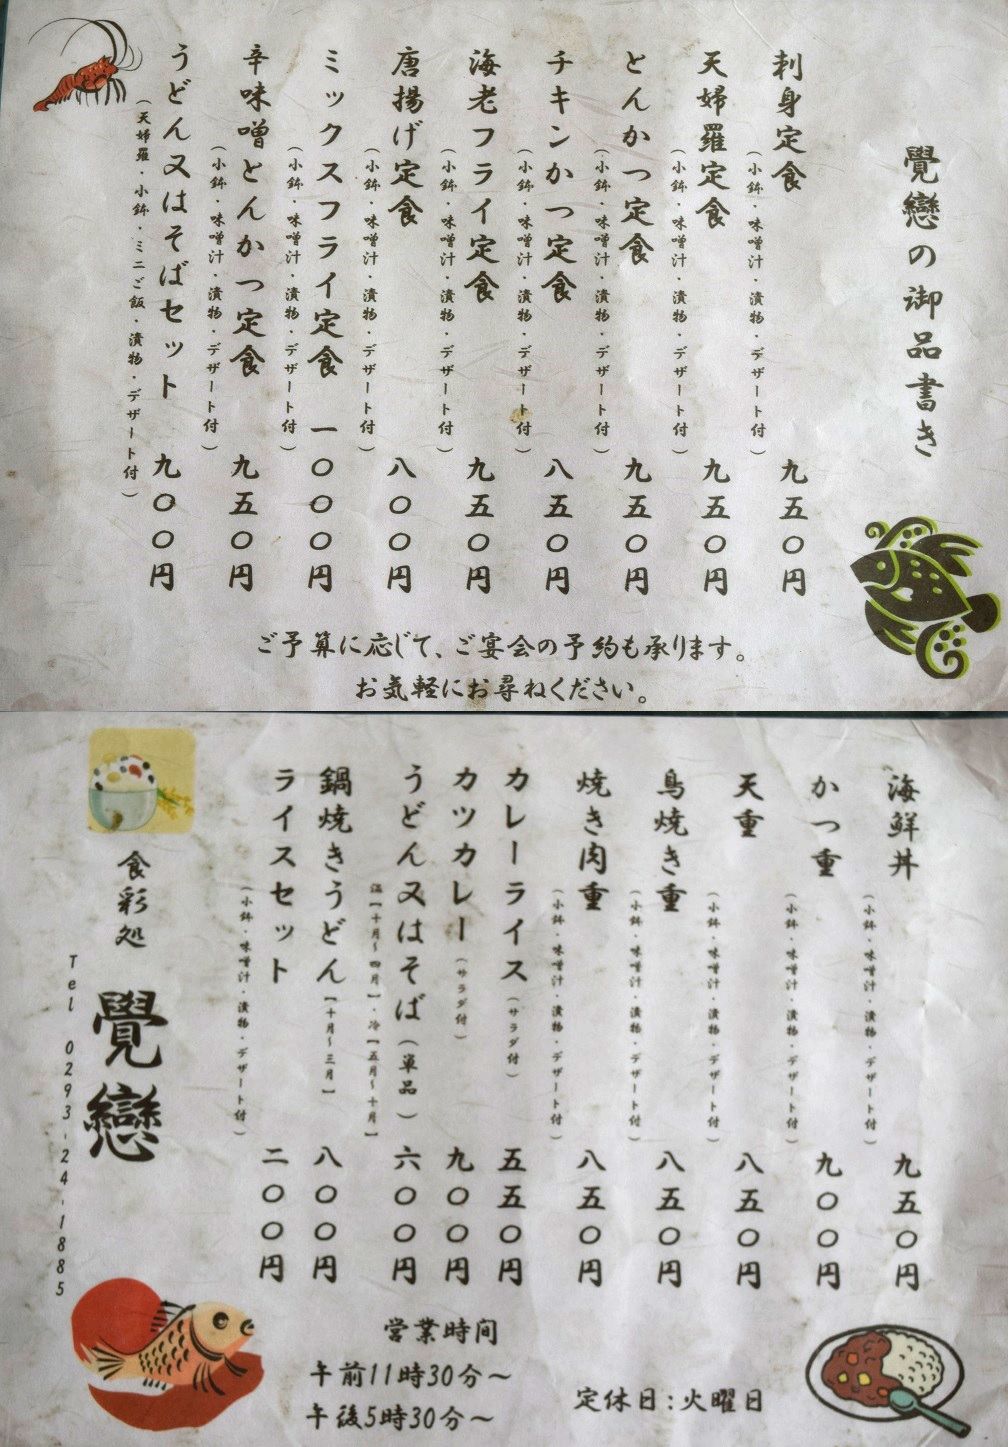 覺戀の御品書き
刺身定食 九五〇円
(小鉢・味噌汁・漬物・デザート付)
天婦羅定食 九五〇円
(小鉢・味噌汁・漬物・デザート付)
とんかつ定食 九五〇円
(小鉢・味噌汁・漬物・デザート付)
チキンかつ定食 八五〇円
(小鉢・味噌汁・漬物・デザート付)
海老フライ定食 九五〇円
(小鉢・味噌汁・漬物・デザート付)
唐揚げ定食 八〇〇円
(小鉢・味噌汁・漬物・デザート付)
ミックスフライ定食 一〇〇〇円
(小鉢・味噌汁・漬物・デザート付)
辛味噌とんかつ定食 九五〇円
(小鉢・味噌汁・漬物・デザート付)
うどん又はそばセット 九〇〇円
(天婦羅・小鉢・ミニご飯・漬物・デザート付)
ご予算に応じて、ご宴会の予約も承ります。
お気軽にお尋ねください。
海鮮丼 九五〇円
(小鉢・味噌汁・漬物・デザート付)
かつ重 九〇〇円
(小鉢・味噌汁・漬物・デザート付)
天重 八五〇円
(小鉢・味噌汁・漬物・デザート付)
鳥焼き重 八五〇円
(小鉢・味噌汁・漬物・デザート付)
焼き肉重 八五〇円
(小鉢・味噌汁・漬物・デザート付)
カレーライス(サラダ付) 五五〇円
カツカレー(サラダ付) 九〇〇円
うどん又はそば(単品) 六〇〇円
温【十月〜四月】・冷【五月〜十月】
鍋焼きうどん【十月〜三月】 八〇〇円
ライスセット 二〇〇円
(小鉢・味噌汁・漬物・デザート付)
食彩処 覺戀
Tel 0293-24-1885
営業時間
午前11時30分〜
午後5時30分〜
定休日:火曜日